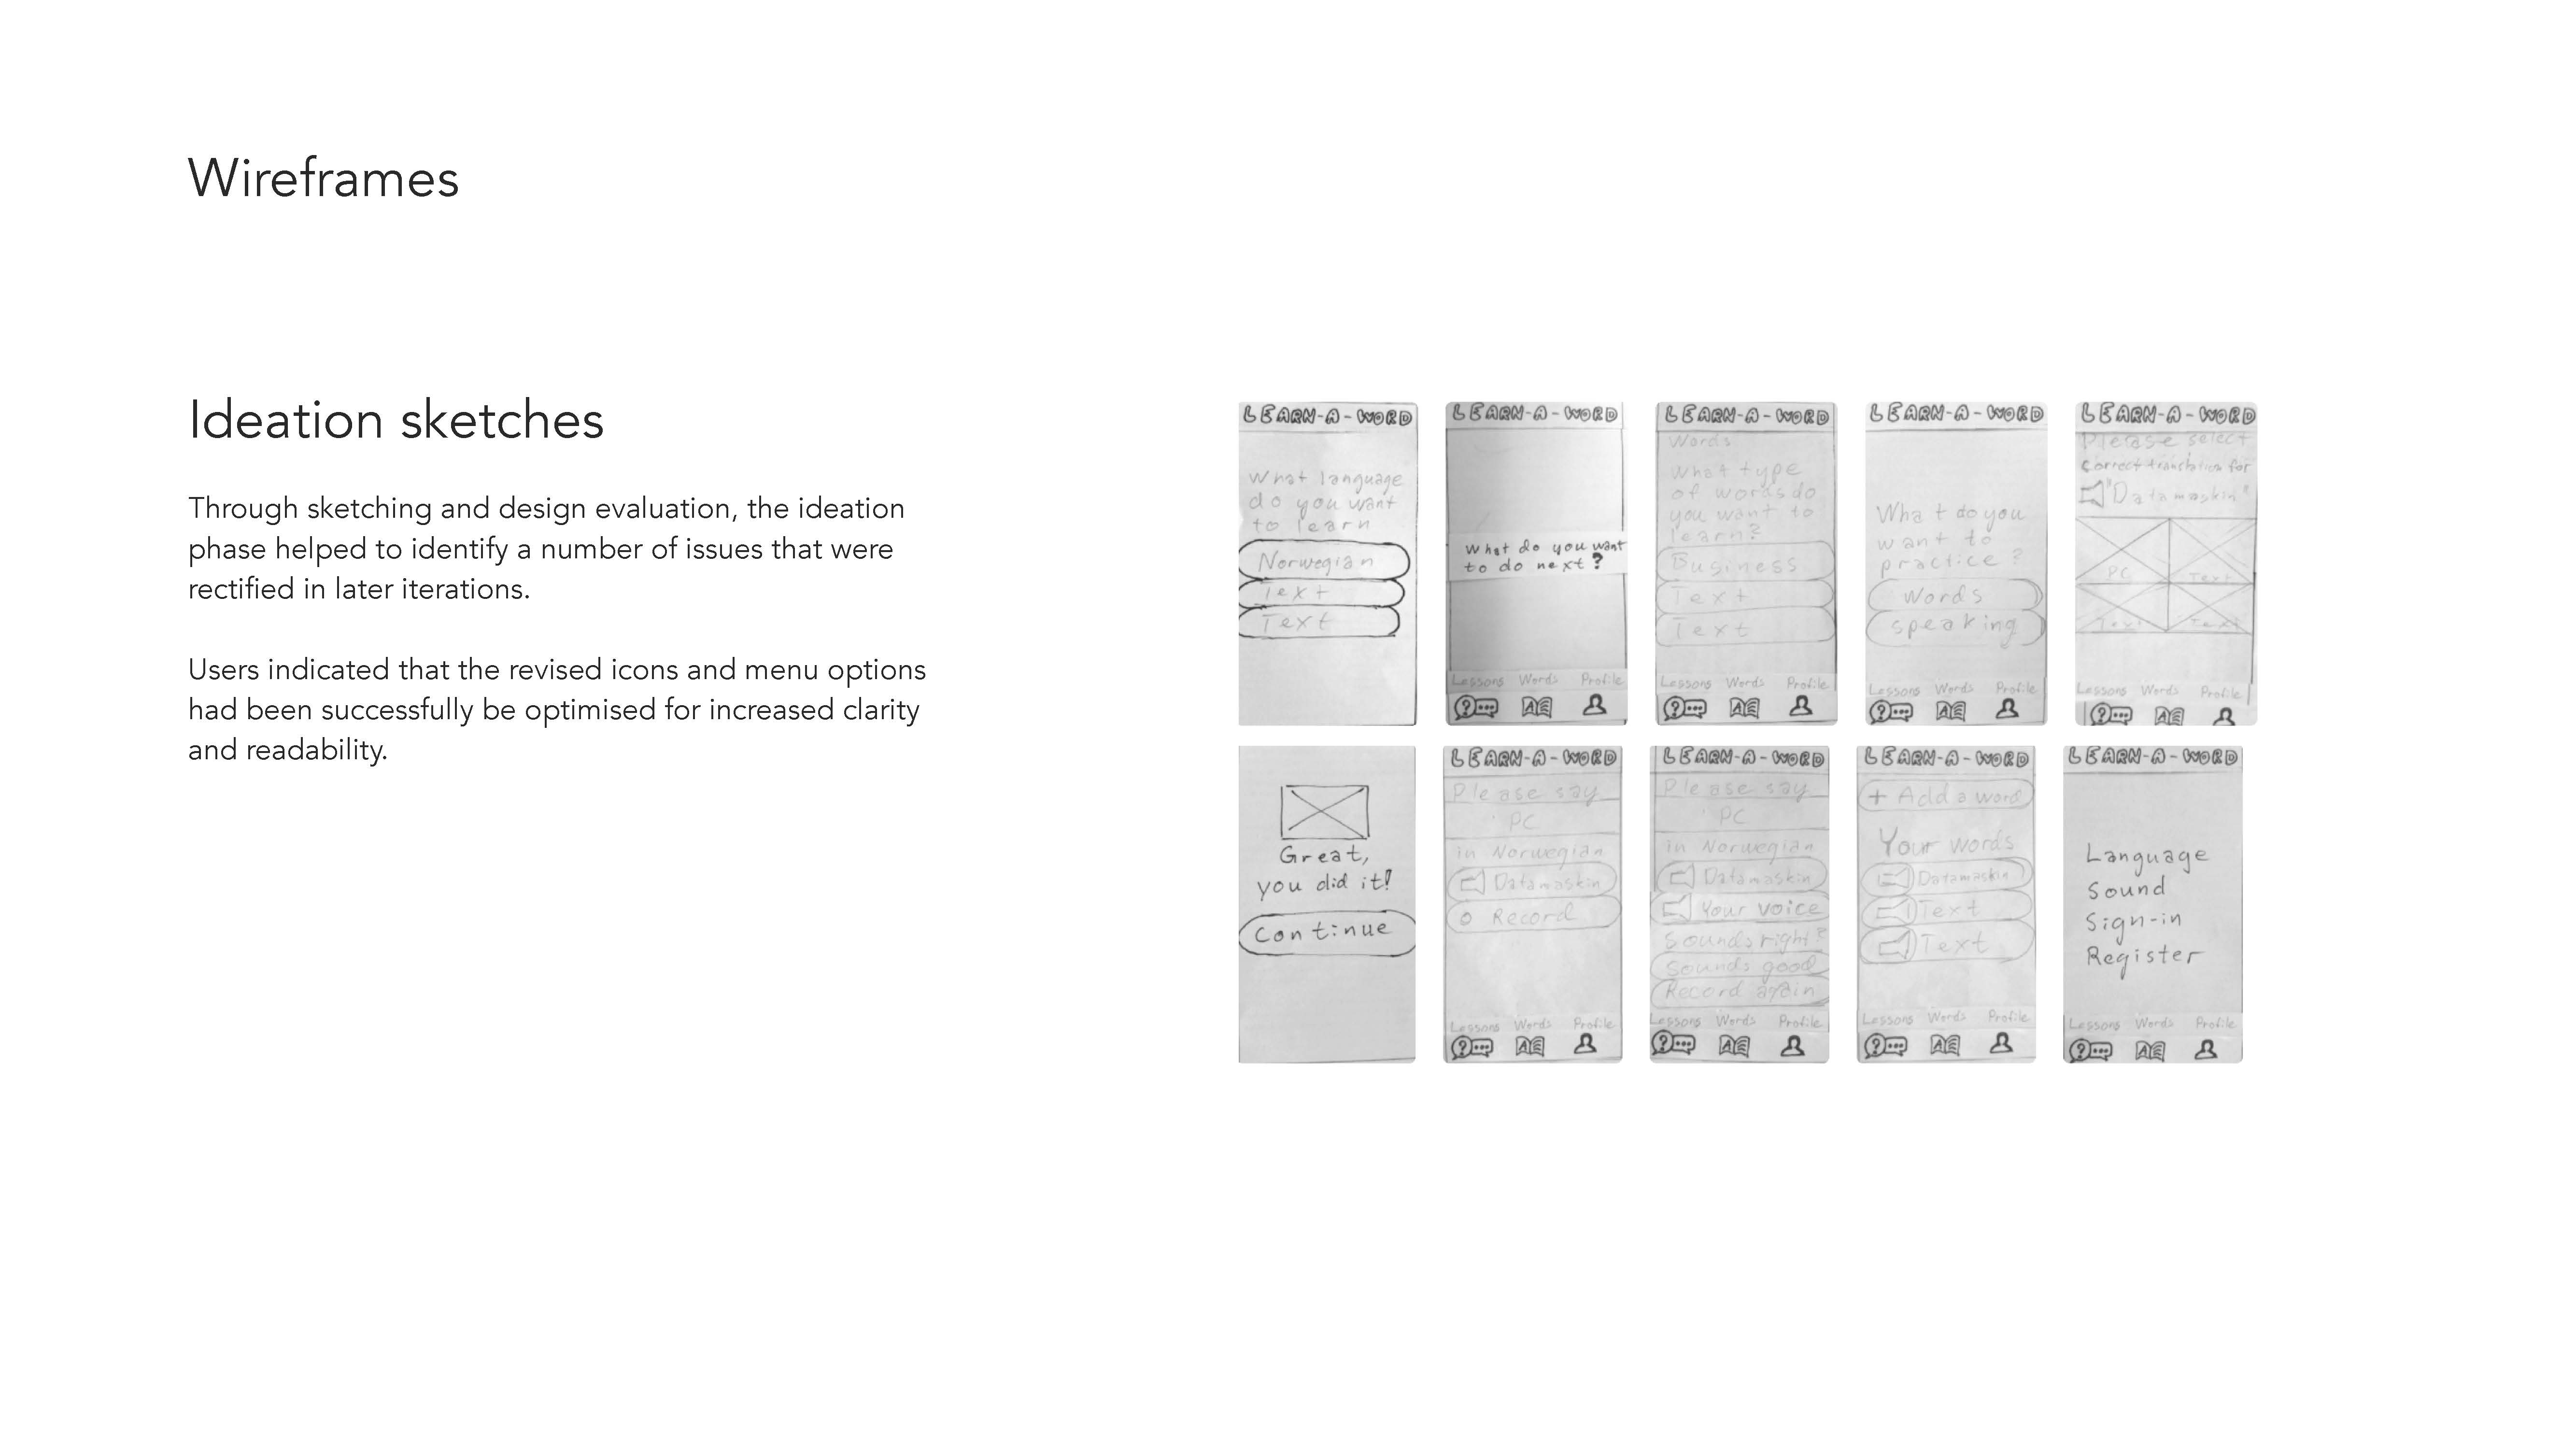 Wireframes
Ideation sketches
Through sketching and design evaluation, the ideation
phase helped to identify a number of issues that were
rectified in later iterations.
Users indicated that the revised icons and menu options
had been successfully be optimised for increased clarity
and readability.
LEARN-A-WORD
What language
do you want
to learn
Norwegian
Text
Text
LEARN-A-WORD
What do you want
to do next?
Lessons Words Profile
LEARN-A-WORD
Words
What type
of words do
you want to
learn?
Business
Text
Text
Lessons Words Profile
LEARN-A-WORD
What do you
want to
practice?
Words
speaking
Lessons Words Profile
LEARN-A-WORD
Please select
correct translation for
"Datamaskin"
PC Text
Text Text
Lessons Words Profile
Great,
you did it!
Continue
LEARN-A-WORD
Please say
PC
in Norwegian
Datamaskin
Record
Lessons Words Profile
LEARN-A-WORD
Please say
PC
in Norwegian
Datamaskin
Your voice
Sounds right?
Sounds good
Record again
Lessons Words Profile
LEARN-A-WORD
+ Add a word
Your words
Datamaskin
Text
Text
Lessons Words Profile
LEARN-A-WORD
Language
Sound
Sign-in
Register
Lessons Words Profile